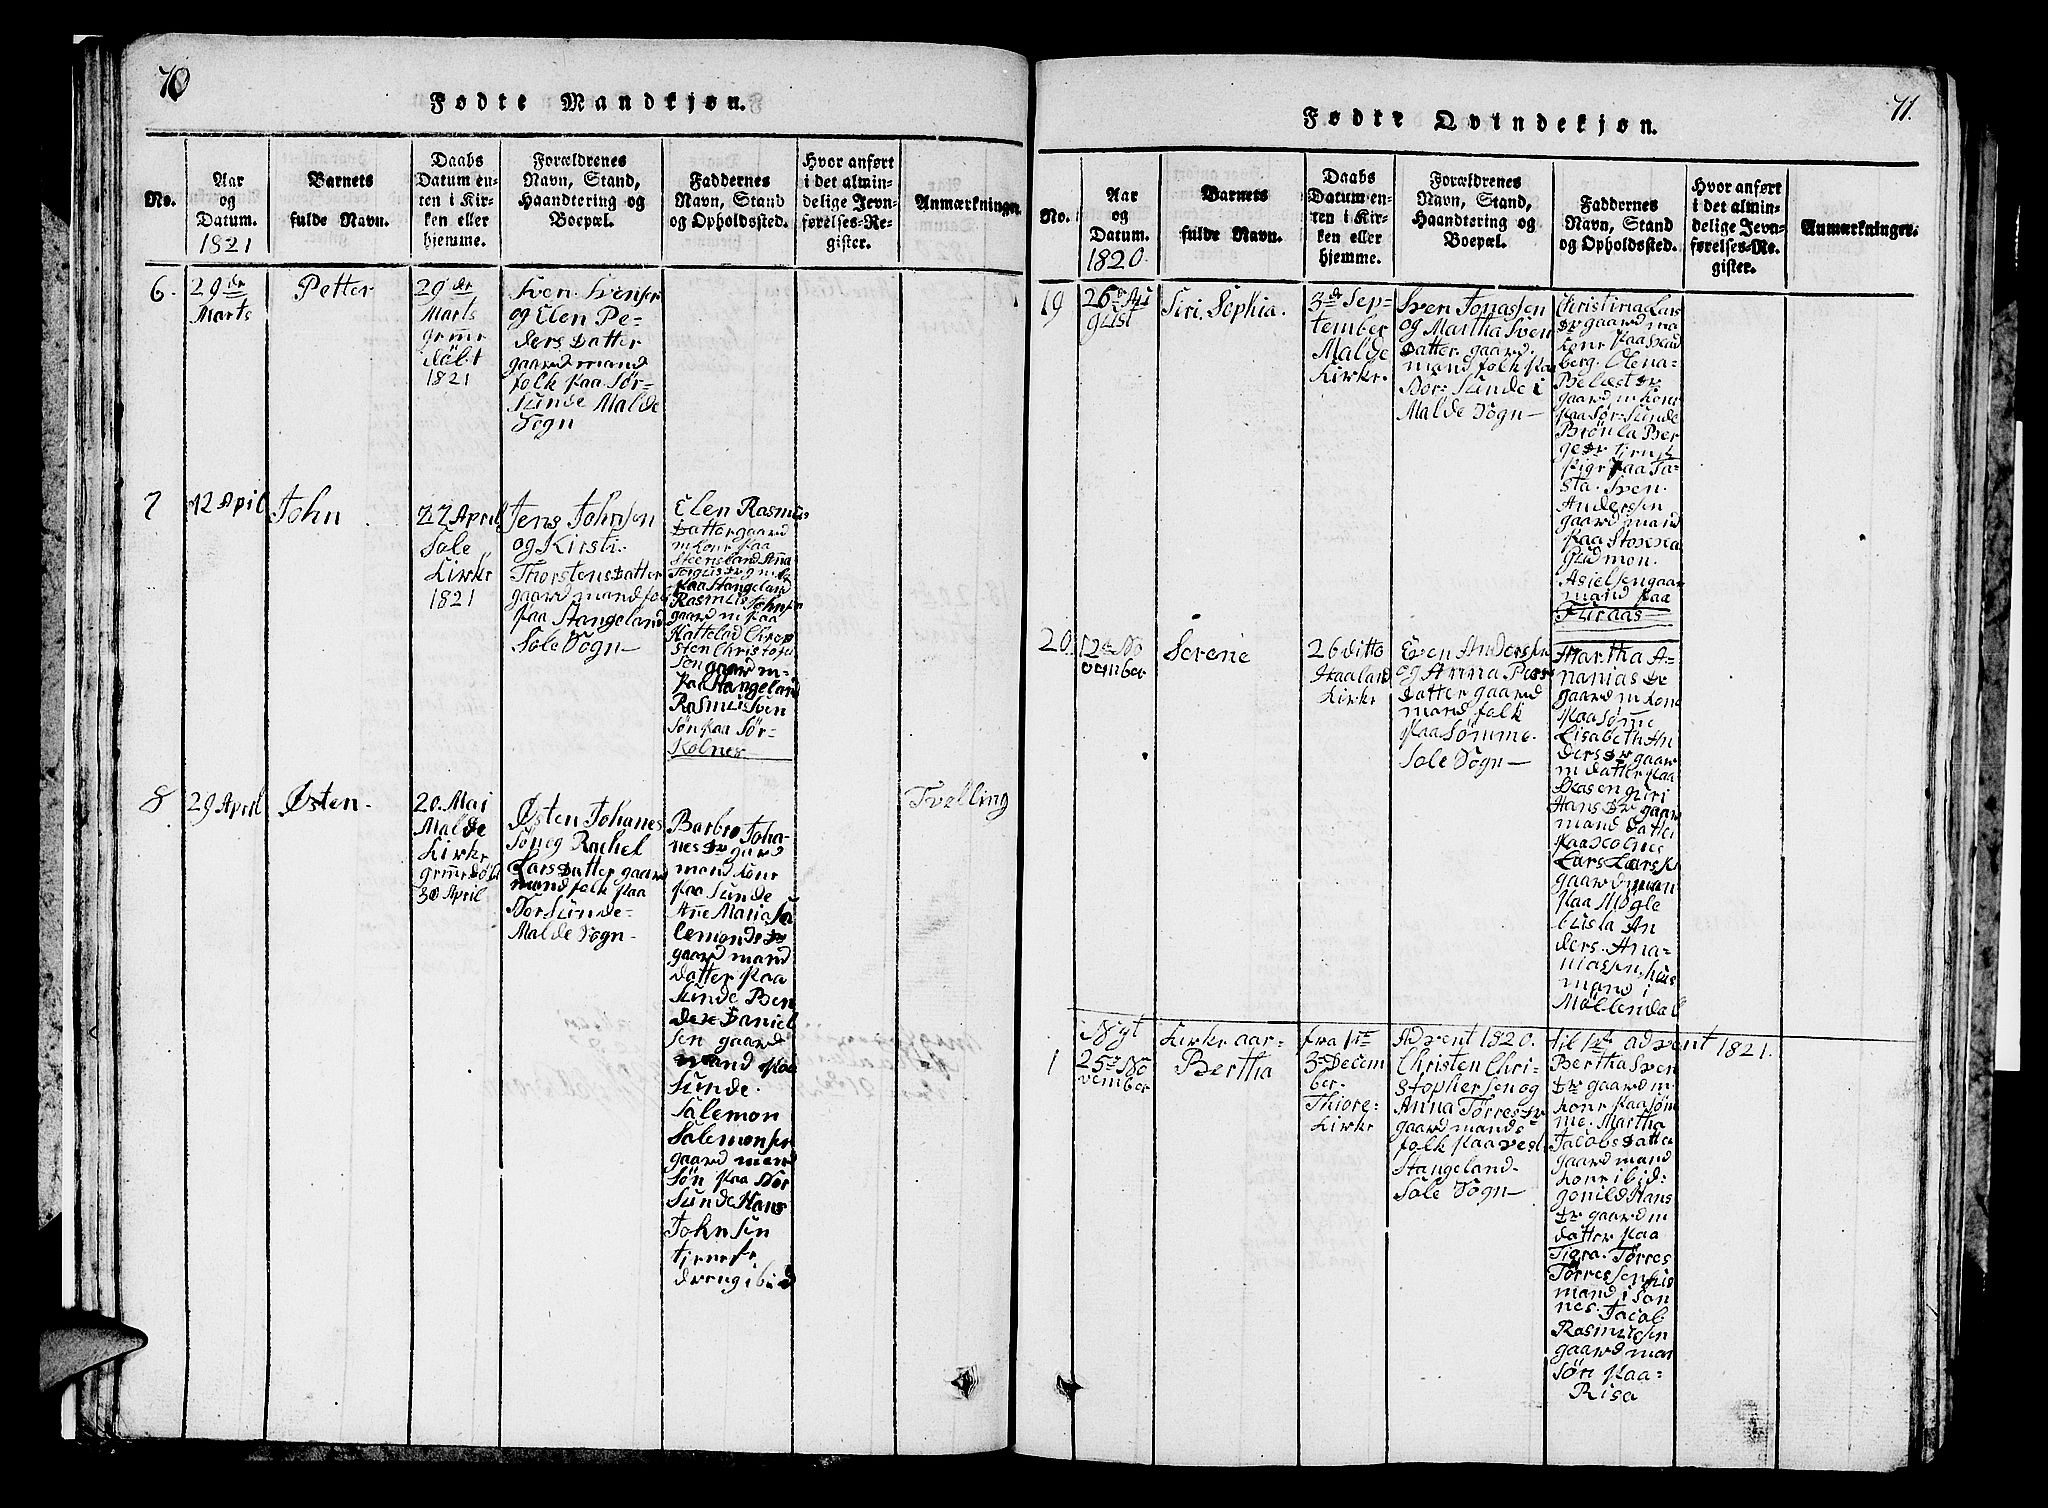 70
Fødte Mandkjøn.
No.
Aar
og
Datum.
1821
Barnets
fulde Navn.
Daabs
Datum en-
ten i Kir-
ken eller
hjemme.
Forældrenes
Navn, Stand,
Haandtering og
Boepæl.
Faddernes
Navn, Stand
og Opholdssted.
Hvor anført
i det almin-
delige Jevn-
førelses-Re-
gister.
Anmærkninger.
6.
29de
Marts
Petter
29de
Marts
døbt
1821
Sven Svensen
og Elen Pe-
ders Datter
gaard mand
folk paa Sør-
Sunde Malde
Sogn
7
12 April
John
22 April
Sole
Kirke
1821
Jens Johnsen
og Kirsti
Thorstens datter
gaard mand folk
paa Stangeland
Sole Sogn
Elen Rasmus
Datter gaard
m kone paa
Steensland Aña
paa Stangeland
Rasmus Johnsen
gaard m paa
sten Christofer
Søn gaard m-
paa Stangeland
Rasmus Sven
Søn paa Sør-
Kolnes
8
29 April
Østen
20. Mai
Malde
Kirke
30 April
Østen Johanes
Søn og Rachel
Lars Datter gaard
mand folk paa
Nor Sunde
Malde Sogn
Barbro Joha-
nes Dr gard
mand kone
paa Sunde
Añe Maria Sa
lemons Dr
gaard mand
datter paa
Sunde Ben
Daniel
sen gaard
mand paa
Sunde.
Salemon
Salemonsen
gaard mand
Søn paa Nor
Sunde Hans
John Sen
tjeneste
dreng ibid
Tvelling
71.
Fødte Qvindekjøn.
No.
Aar
og
Datum.
1820
Barnets
fulde Navn.
Daabs
Datum en-
ten i Kir-
ken eller
hjemme.
Forældrenes
Navn, Stand,
Haandtering og
Boepæl.
Faddernes
Navn, Stand
og Opholdssted.
Hvor anført
i det almin-
delige Jevn-
førelses-Re-
gister.
Anmærkninger.
19
26de Au
gust
Siri Sophia.
3de Sep-
tember
Malde
Kirke.
Sven Jonassen
og Martha Sven
Datter. gaard
mand folk paa
Nor: Sunde i
Malde Sogn
Christina Lars
Dr gaard ma
kone paa
berg. Olena
gaard m kone
paa Sør: Sunde
Ber
ge Dr tjenst
pige paa Ta-
sta. Sven
Anderssen
gaard mand
paa Stokka
Gudmon.
Asielsen gaar
mand paa
20.
12te No
vember
Serene
26 ditto
Haaland
Kirke
Even Anderssen
og Anna Peers
Datter gaard
mand folk
paa Sømme.
Sole Sogn
Martha A-
nanias Dr
gaard m kone
paa Søm̄e
Lisabeth An
ders Dr gaar
m datter paa
Hans Dr gaar
mand Datter
paa Kolnes
Lars Lars
gaard man
paa Mogle
An
ders. Ana-
niassen, hus
mand i
Møllendal
Nyt Kirke aar- fra 1ste Advent 1820. til 1ste advent 1821.
1
25de No
vember
Bertha
3de Decem
ber.
Thiore-
Kirke
Christen Chri-
stophersen og
Anna Tørres Dr
gaard mands
folk paa vest
Stangeland
Sole Sogn
Bertha Sven
Dr gaard m
kone paa Søm
me. Martha
Jacobs datter
gaard mand
kone ibid:
Gonild Hans
Dr gaard m
datter paa
Tigra. Tørres
Tørressen hus
mand i Son
nes. Jacob
Rasmussen
gaard man
Søn paa
Risa